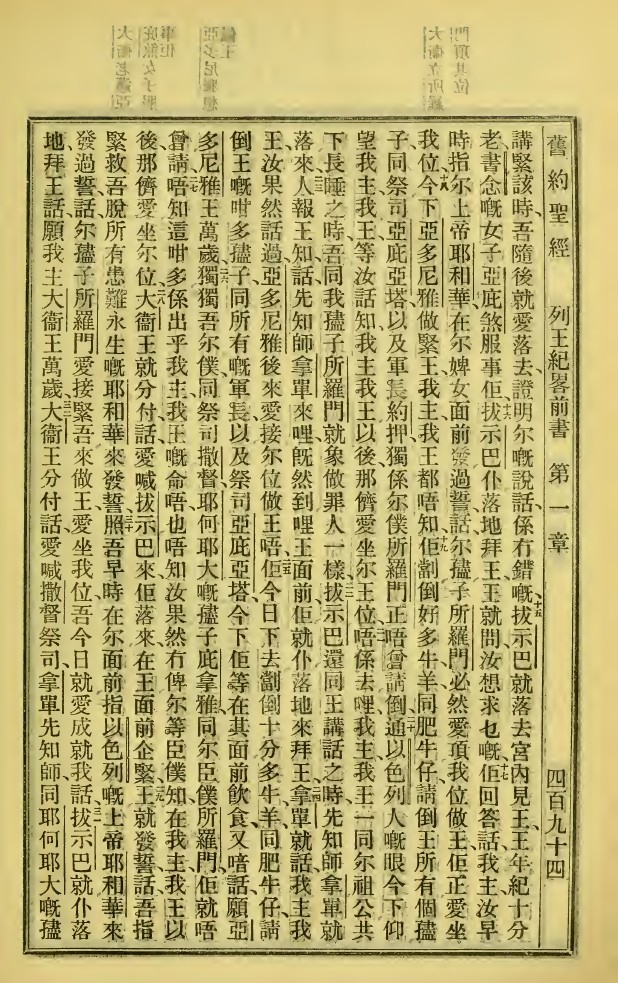 舊約聖經 列王紀畧前書 第一章 四百九十四
講緊該時、吾隨後就愛落去、證明尔嘅說話、係冇錯嘅、十五拔示巴就落去宮內見王、王年紀十分
老、書念嘅女子亞庇煞服事佢、十六拔示巴仆落地拜王、王就問汝想求乜嘅、十七佢回答話、我主、汝早
時指尔上帝耶和華、在尔婢女面前發過誓話、尔孻子所羅門、必然愛頂我位做王、佢正愛坐
我位、十八今下亞多尼雅做緊王、我主、我王都唔知、十九佢劏倒好多牛羊、同肥牛仔、請倒王所有個孻
子、同祭司亞庇亞塔、以及軍長約押、獨係尔僕所羅門、正唔曾請倒、二十通以色列人嘅眼、今下仰
望我主我王、等汝話知我主我王以後、那儕愛坐尔王位、二一唔係去哩、我主我王一同尔祖公共
下長睡之時、吾同我孻子所羅門、就象做罪人一樣、二二拔示巴還同王講話之時、先知師拿單就
落來、二三人報王知、話先知師拿單來哩、旣然到哩王面前、佢就仆落地來拜王、二四拿單就話、我主我
王、汝果然話過亞多尼雅後來愛接尔位做王唔、二五佢今日下去、劏倒十分多牛羊、同肥牛仔、請
倒王嘅咁多孻子、同所有嘅軍長、以及祭司亞庇亞塔、今下佢等在其面前飮食、又喑話願亞
多尼雅王萬歲、二六獨獨吾尔僕、同祭司撒督、耶何耶大嘅孻子庇拿雅、同尔臣僕所羅門、佢就唔
曾請、二七唔知這咁多係出乎我主我王嘅命唔、也唔知汝果然冇俾尔等臣僕知、在我主我王以
後、那儕愛坐尔位、二八大衞王就分付話、愛喊拔示巴來、佢落來在王面前企緊、二九王就發誓話、吾指
緊救吾脫所有患難永生嘅耶和華來發誓、三十照吾早時在尔面前、指以色列嘅上帝耶和華來
發過誓話、尔孻子所羅門、愛接緊吾來做王、愛坐我位、吾今日就愛成就我話、三一拔示巴就仆落
地拜王話、願我主大衞王萬歲、三二大衞王分付話、愛喊撒督祭司、拿單先知師、同耶何耶大嘅孻